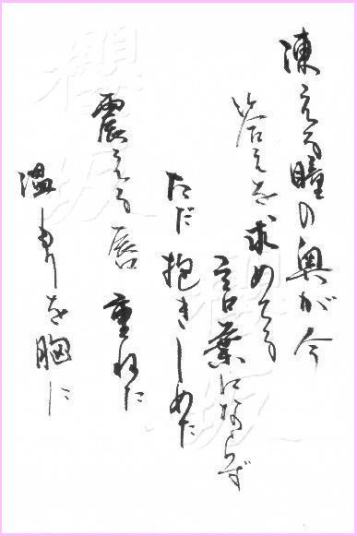 凍える瞳の奥が今
答えを求めてる
言葉にならず
ただ抱きしめた
震える唇 重ねた
温もりを胸に
櫻坂
櫻坂